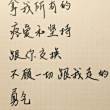 拿我所有的
疼爱和坚持
跟你交换
不顾一切跟我走的
勇气